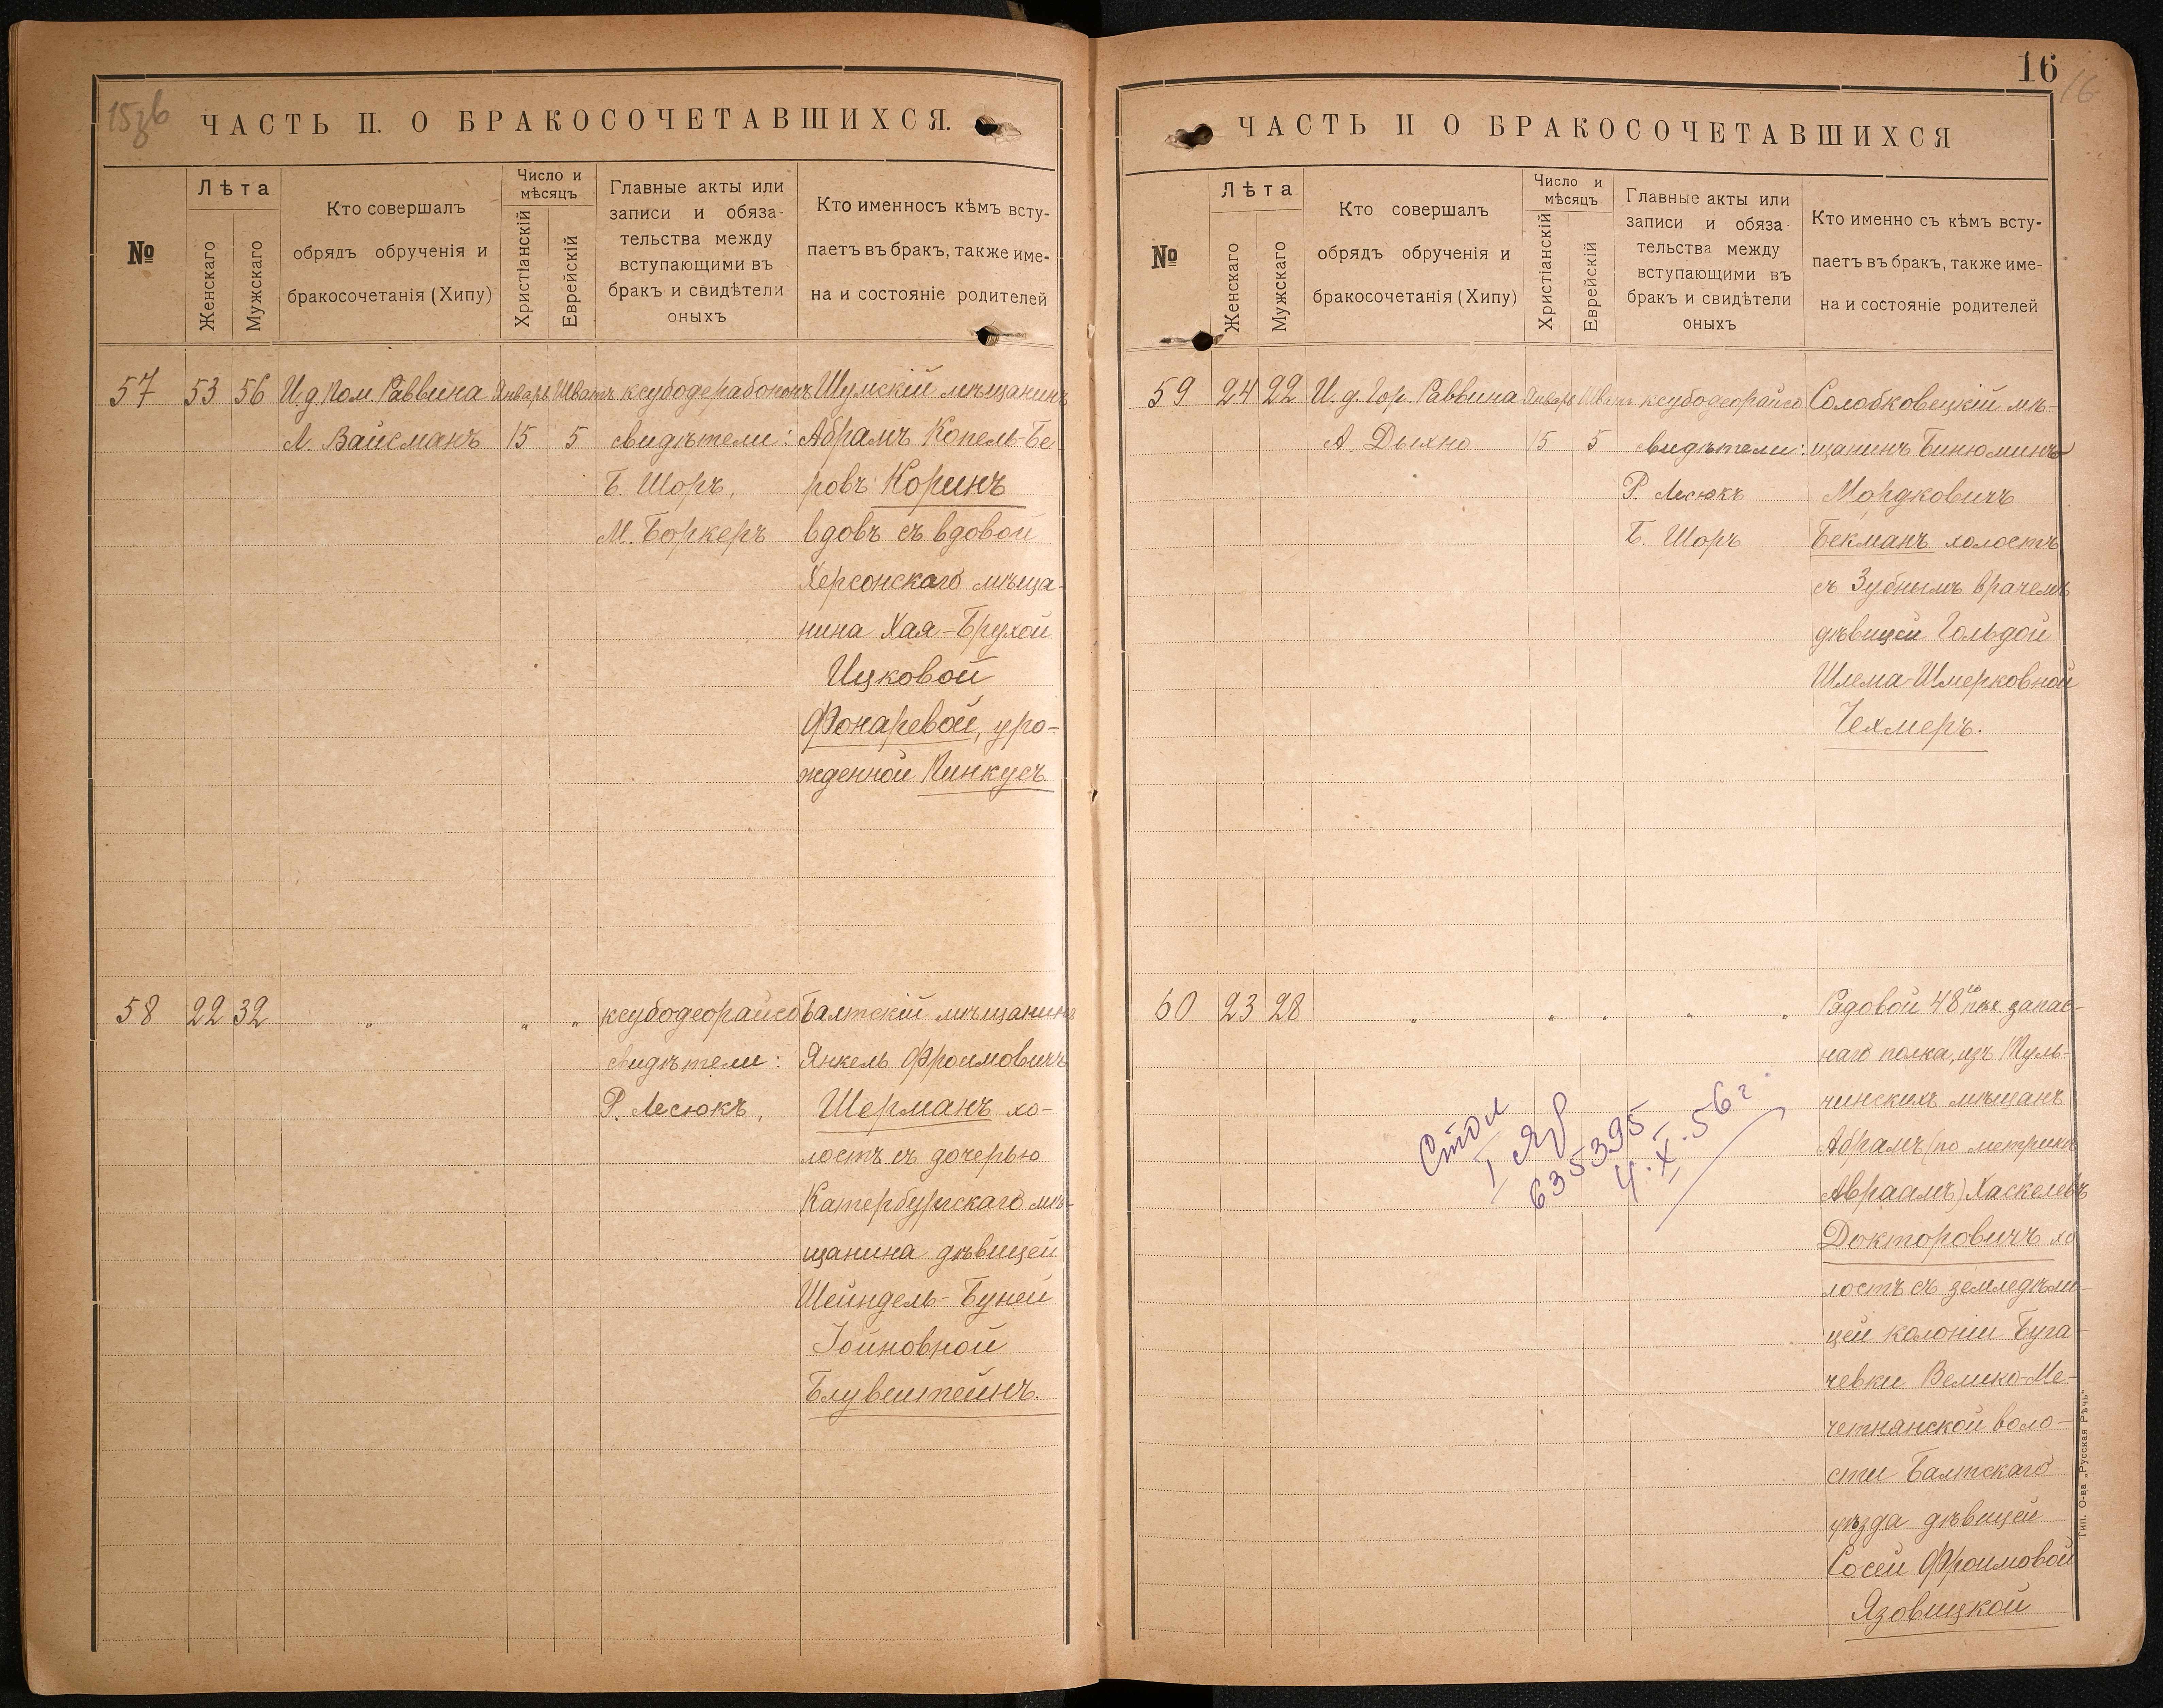 15зв
ЧАСТЬ II. О БРАКОСОЧЕТАВШИХСЯ.
№
Лѣта
Женскаго
Мужскаго
Кто совершалъ
обрядъ обрученія и
бракосочетанія (Хипу)
Число и
мѣсяцъ
Христіанскій
Еврейскій
Главные акты или
записи и обяза-
тельства между
вступающими въ
бракъ и свидѣтели
оныхъ
Кто именносъ кѣмъ всту-
паетъ въ бракъ, также име-
на и состояніе родителей
57 53 56 И.д. Пом. Раввина Январь Шватъ ксубодерабононъ Шумскій мѣщанинъ
Л. Вайсманъ 15 5 свидѣтели: Абрамъ Копель-Бе
Б. Шоръ, ровъ Коринъ
М. Боркеръ вдовъ съ вдовой
Херсонскаго мѣща-
нина Хая-Брухой
Ицковой
Фонаревой, уро-
жденной Пинкусъ
58 22 32 " " " ксубодеорайсо Балтскій мѣщанинъ
свидѣтели: Янкель Фроимовичъ
Р. Лесюкъ, Шерманъ хо-
лостъ съ дочерью
Катербургскаго мѣ-
щанина дѣвицей
Шейндель-Буней
Іойновной
Блувштейнъ.
16
16
ЧАСТЬ II О БРАКОСОЧЕТАВШИХСЯ
№
Лѣта
Женскаго
Мужскаго
Кто совершалъ
обрядъ обрученія и
бракосочетанія (Хипу)
Число и
мѣсяцъ
Христіанскій
Еврейскій
Главные акты или
записи и обяза
тельства между
вступающими въ
бракъ и свидѣтели
оныхъ
Кто именно съ кѣмъ всту-
паетъ въ бракъ, также име-
на и состояніе родителей
59 24 22 И.д. Гор. Раввина Январь Шватъ ксубодеорайсо Солобковецкій мѣ-
А. Дыхно 15 5 свидѣтели: щанинъ Бинюминъ
Р. Лесюкъ Мордковичъ
Б. Шоръ Бекманъ холостъ
съ Зубнымъ врачемъ
дѣвицей Гольдой
Шлема-Шмерковной
Чехмеръ.
60 23 28 " " " " " Рядовой 48го пѣх. запас-
наго полка, изъ Туль-
чинскихъ мѣщанъ
Абрамъ (по метрикѣ
Авраамъ) Хаскелевъ
Докторовичъ хо
лостъ съ земледѣли-
цей колоніи Буга-
чевки Велико-Ме-
четнянской воло-
сти Балтскаго
уѣзда дѣвицей
Сосей Фроимовой
Язовицкой
Стол
I
635395
4.XI.56 г.
Тип. О-ва „Русская Рѣчь"